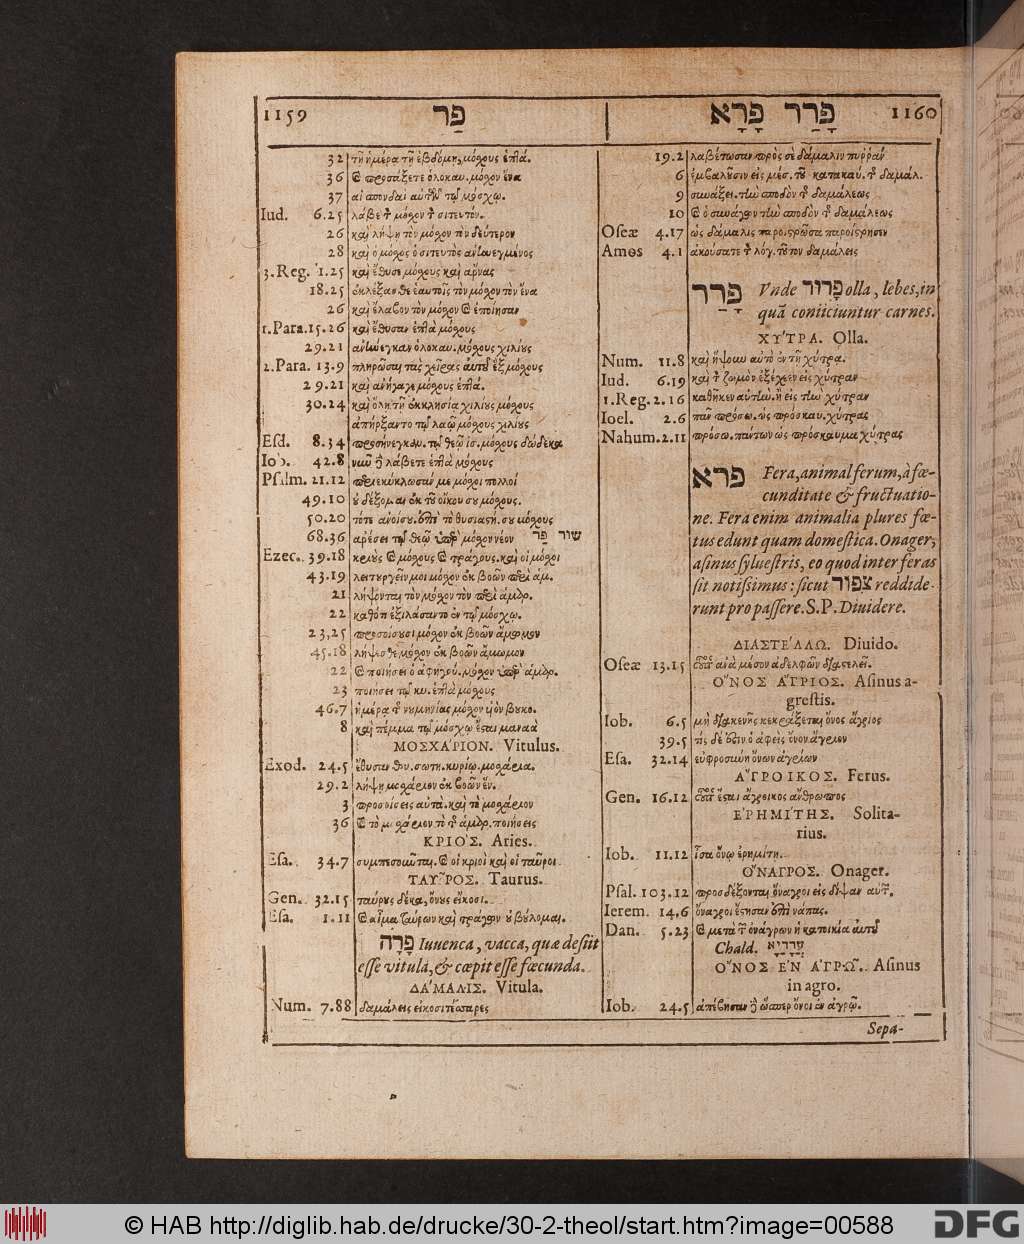 1159 פַּר
32 τῇ ἡμέρα τῇ ἑβδόμη, μόσχους ἑπτά.
36 καὶ προσάξετε ὁλοκαυ. μόσχον ἕνα
37 αἱ σπονδαὶ αὐτῶν τῷ μόσχῳ.
Iud. 6.25 λάβε τὸν μόσχον τὸν σιτευτόν.
26 καὶ λήψῃ τὸν μόσχον τὸν δεύτερον
28 καὶ ὁ μόσχος ὁ σιτευτὸς ἀνηνεγμένος
3.Reg. 1.25 καὶ ἔθυσε μόσχους καὶ ἄρνας
18.25 ἐκλέξασθε ἑαυτοῖς τὸν μόσχον τὸν ἕνα
26 καὶ ἔλαβον τὸν μόσχον καὶ ἐποίησαν
1.Para.15.26 καὶ ἔθυσαν ἑπτὰ μόσχους
29.21 ἀνήνεγκαν ὁλοκαυ. μόσχους χιλίους
2.Para. 13.9 πληρῶσαι τὰς χεῖρας αὐτοῦ ἓξ μόσχους
29.21 καὶ ἀνήγαγε μόσχους ἑπτά.
30.24 καὶ ὅλῃ τῇ ἐκκλησία χιλίους μόσχους
ἀπήρξαντο τῷ λαῷ μόσχους χιλίους
Esd. 8.34 προσήνεγκαν. τῷ θεῷ ἰσ. μόσχους δώδεκα
Iob. 42.8 νῦν δὲ λάβετε ἑπτὰ μόσχους
Psalm. 21.12 περιεκύκλωσαν με μόσχοι πολλοί
49.10 οὐ δέξομαι ἐκ τοῦ οἴκου σου μόσχους.
50.20 τότε ἀνοίσου. ἐπὶ τὸ θυσιαστη. σου μόσχους
68.36 ἀρέσει τῷ θεῷ ὑπὲρ μόσχον νέον שור פר
Ezec. 39.18 κριοὺς καὶ μόσχους καὶ τράγους. καὶ οἱ μόσχοι
43.19 λειτουργεῖν μοι μόσχον ἐκ βοῶν περὶ ἁμ.
21 λήψονται τὸν μόσχον τὸν περὶ ἁμαρ.
22 καθότι ἐξιλάσαντο ἐν τῷ μόσχῳ.
23,25 προσοίσουσι μόσχον ἐκ βοῶν ἄμωμον
45.18 λήψεσθε μόσχον ἐκ βοῶν ἄμωμον
22 καὶ ποιήσει ὁ ἀφηγού. μόσχον ὑπὲρ ἁμαρ.
23 ποιήσει τῷ κυ. ἑπτὰ μόσχους
46.7 ἡμέρα τῆς νουμηνίας μόσχον
8 καὶ πέμμα τῷ μόσχῳ ἔσται μαναὰ
ΜΟΣΧΑΡΙΟΝ. Vitulus.
Exod. 24.5 ἔθυσαν θυ. σωτη. κυρίῳ μοσχάρια.
29.2 λήψῃ μοσχάριον ἐκ βοῶν ἕν.
3 προσοίσεις αὐτὰ. καὶ τὸ μοσχάριον
36 καὶ τὸ μοσχάριον τὸ τῆς ἁμαρ. ποιήσεις
ΚΡΙΟΣ. Aries.
Esa. 34.7 συμπεσοῦνται. καὶ οἱ κριοὶ καὶ οἱ ταῦροι
ΤΑΥ͂ΡΟΣ. Taurus.
Gen. 32.15 ταύρους δέκα, ὄνους εἴκοσι.
Esa. 1.11 καὶ αἷμα ταύρων καὶ τράγων οὐ βούλομαι.
פָּרָה Iuuenca, vacca, quæ desiit
esse vitula, & cœpit esse fœcunda.
ΔΑ΄ΜΑΛΙΣ. Vitula.
Num. 7.88 δαμάλεις εἰκοσιτέσσαρες
פָּרַר פָּרָא 1160
19.2 λαβέτωσαν πρὸς σὲ δάμαλιν πυρρὰν
6 ἐμβαλοῦσιν εἰς μέσ. τοῦ κατακαύ. τῆς δαμάλ.
9 συνάξει. τὴν σποδὸν τῆς δαμάλεως
10 καὶ ὁ συνάγων τὴν σποδὸν τῆς δαμάλεως
Oseæ 4.17 ὡς δάμαλις παροιστρῶσα παροίστρησεν
Amos 4.1 ἀκούσατε τὸν λόγ. τοῦτον δαμάλεις
פָּרַר Vnde פָּרוּר olla, lebes, in
quã coniiciuntur carnes.
ΧΥ΄ΤΡΑ. Olla.
Num. 11.8 καὶ ἥψουν αὐτὸ ἐν τῇ χύτρα.
Iud. 6.19 καὶ τὸν ζωμὸν ἐξέχεεν εἰς χύτραν
1.Reg. 2.16 καθῆκεν αὐτὴν. ἢ εἰς τὴν χύτραν
Ioel. 2.6 πᾶν πρόσω. ὡς πρόσκαυ. χύτρας
Nahum. 2.11 πρόσω. πάντων ὡς πρόσκαυμα χύτρας
פרא Fera, animal ferum, à fœ-
cunditate & fructuatio-
ne. Fera enim animalia plures fœ-
tus edunt quam domestica. Onager,
asinus syluestris, eo quod inter feras
sit notissimus: sicut צפור reddide-
runt pro passere. S.P. Diuidere.
ΔΙΑΣΤΕ΄ΛΛΩ. Diuido.
Oseæ 13.15 οὗτος ἀνὰ μέσον ἀδελφῶν διαστελεῖ.
Ο῎ΝΟΣ Α῎ΓΡΙΟΣ. Asinus a-
grestis.
Iob. 6.5 μὴ διακενῆς κεκράξεται ὄνος ἄγριος
39.5 τίς δέ ἐστιν ὁ ἀφεὶς ὄνον ἄγριον
Esa. 32.14 εὐφροσύνη ὄνων ἀγρίων
Α῎ΓΡΟΙΚΟΣ. Ferus.
Gen. 16.12 οὗτος ἔσται ἄγροικος ἄνθρωπος
ΕΡΗΜΙΤΗΣ. Solita-
rius.
Iob. 11.12 ἴσα ὄνῳ ἐρημίτῃ.
Ο῎ΝΑΓΡΟΣ. Onager.
Psal. 103.12 προσδέξονται ὄναγροι εἰς δίψαν αὐτῶν.
Ierem. 14.6 ὄναγροι ἔστησαν ἐπὶ νάπας.
Dan. 5.23 καὶ μετὰ τῶν ὀνάγρων ἡ κατοικία αὐτοῦ
Chald. ערדיא
Ο῎ΝΟΣ ΕΝ ΑΓΡΩ͂. Asinus
in agro.
Iob. 24.5 ἀπέβησαν δὲ ὥσπερ ὄνοι ἐν ἀγρῷ.
Sepa-
© HAB http://diglib.hab.de/drucke/30-2-theol/start.htm?image=00588
DFG